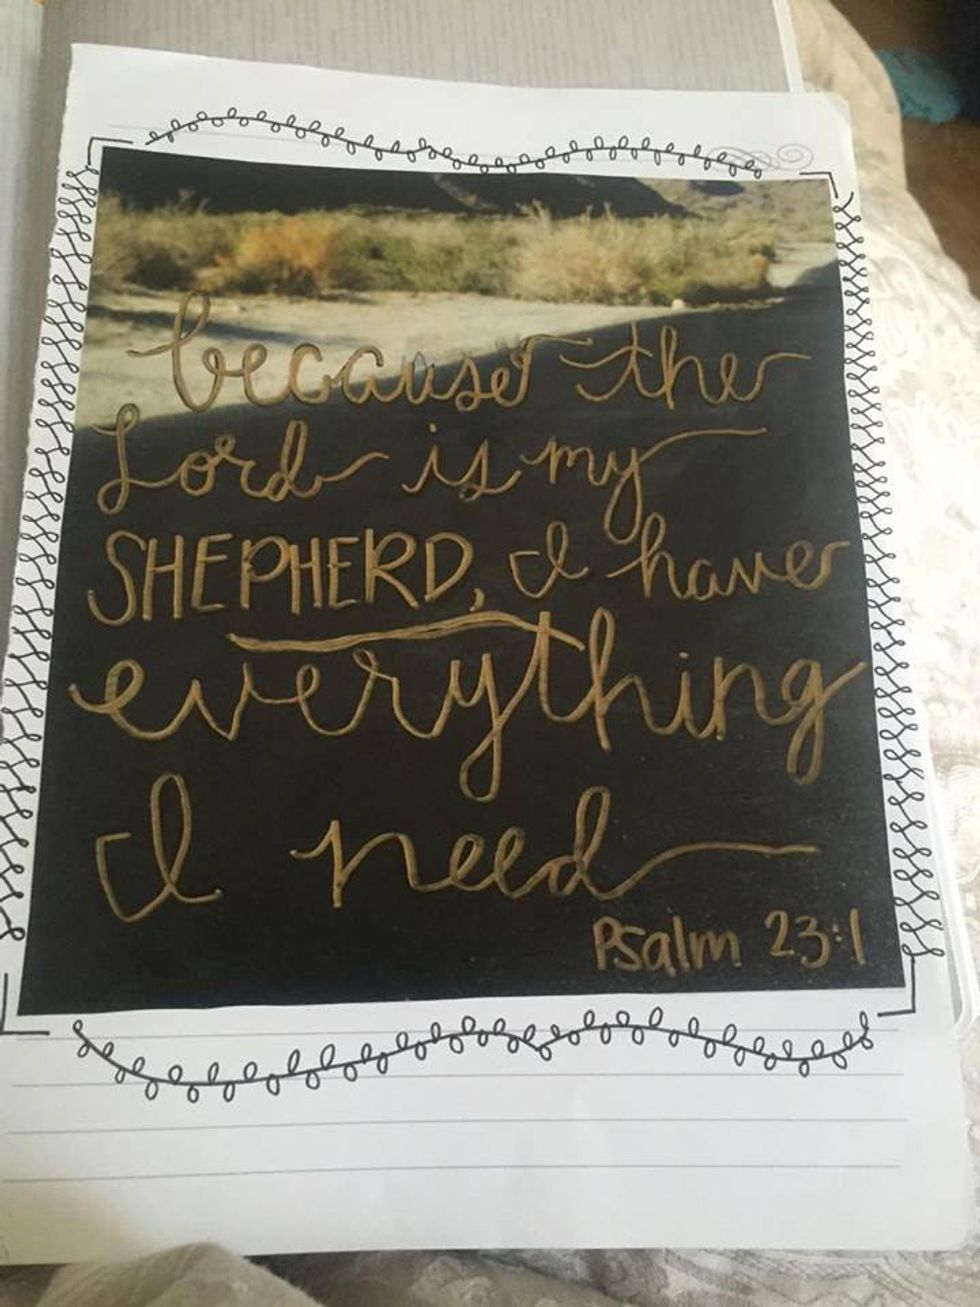 because the
Lord is my
SHEPHERD, I have
everything
I need
Psalm 23:1